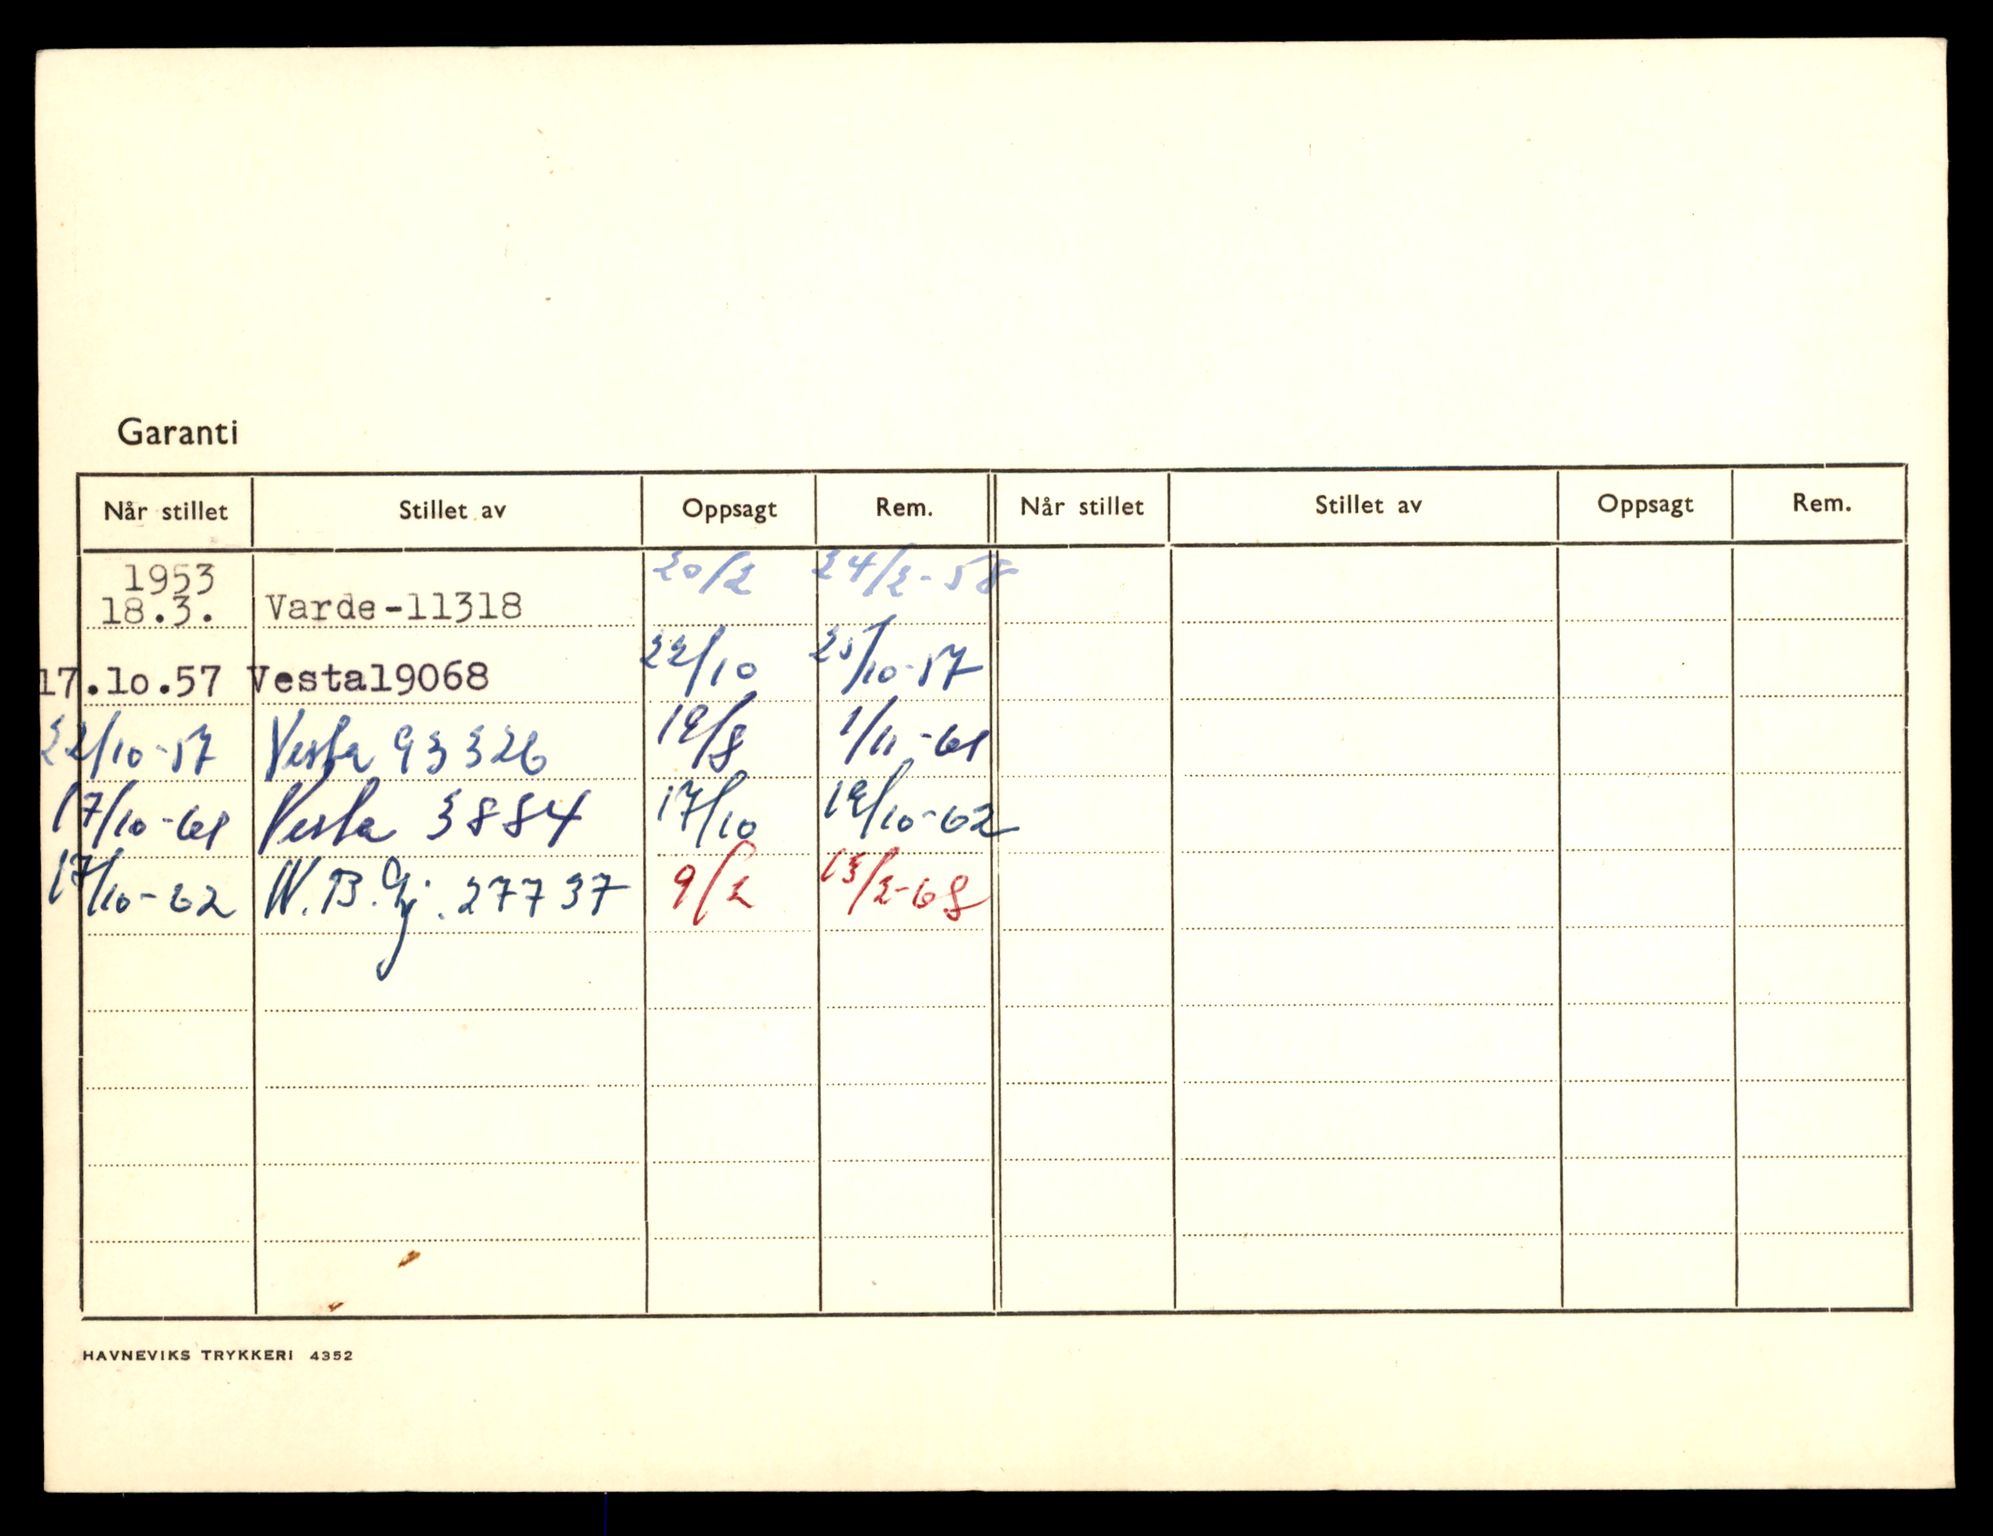 Garanti
Når stillet Stillet av Oppsagt Rem. Når stillet Stillet av Oppsagt Rem.
1953 20/2 24/2-58
18.3. Varde-11318
17.10.57 Vesta19068 22/10 25/10-57
22/10-57 Vesta 93326 19/8 1/11-61
17/10-61 Vesta 3884 17/10 19/10-62
17/10-62 W.B.Gj. 27737 9/2 13/2-68
HAVNEVIKS TRYKKERI 4352